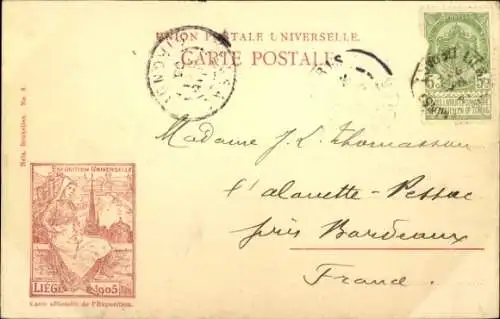 UNION POSTALE UNIVERSELLE.
CARTE POSTALE
Nels, Bruxelles. No. 8.
5 5
Madame J. L. Thomasson
l'alouette-Pessac
près Bordeaux
France.
EXPOSITION UNIVERSELLE
LIÉGE 1905
Carte officielle de l'Exposition.